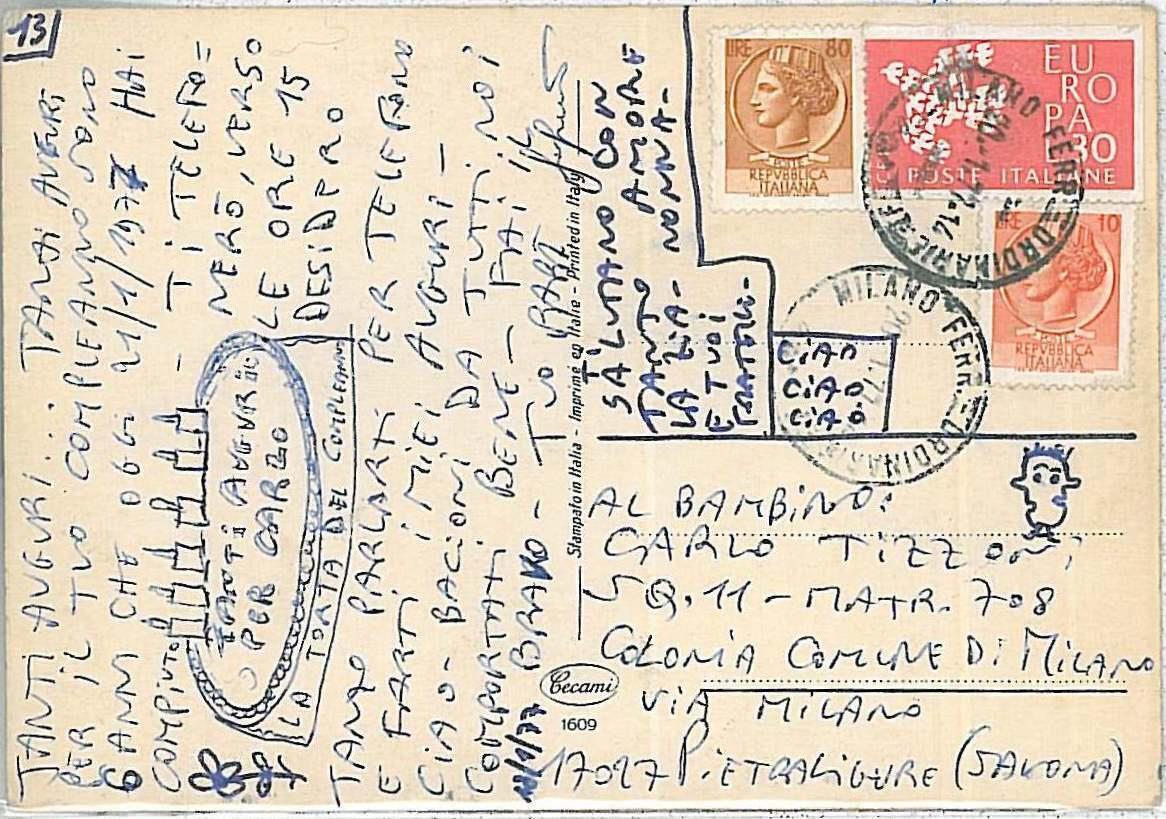 13
TANTI AUGURI: TANTI AUGURI
PER IL TUO COMPLEANNO SONO
6 ANNI CHE OGGI 21/1/1977 HAI
COMPIUTO - TI TELEFO=
NERÒ, VERSO
LE ORE 15
DESIDERO
TANTI AUGURI
PER CARLO
LA TORTA DEL COMPLEANN
TANTO PARLARTI PER TELEFONO
E FARTI I MIEI AUGURI -
CIAO - BACIONI DA TUTTI NOI
COMPORTATI BENE - FAI IL
BRAVO - TUO
Stampato in Italia - Imprimé en Italie - Printed in Italy
TI
SALUTANO CON
TANTO AMORE
LA ZIA - NONNA -
E TUOI
FRATELLI -
CIAO
CIAO
CIAO
LIRE 80
POSTE
REPUBBLICA
ITALIANA
EU
RO
PA
L30
POSTE ITALIANE
LIRE 10
REPUBBLICA
ITALIANA
MILANO FERR. ORDINARIE
MILANO FERR. ORDINARIE
AL BAMBINO:
CARLO TIZZONI
SQ. 11 - MATR. 708
COLONIA COMUNE DI MILANO
VIA MILANO
17027 PIETRALIGURE (SAVONA)
Cecami
1609